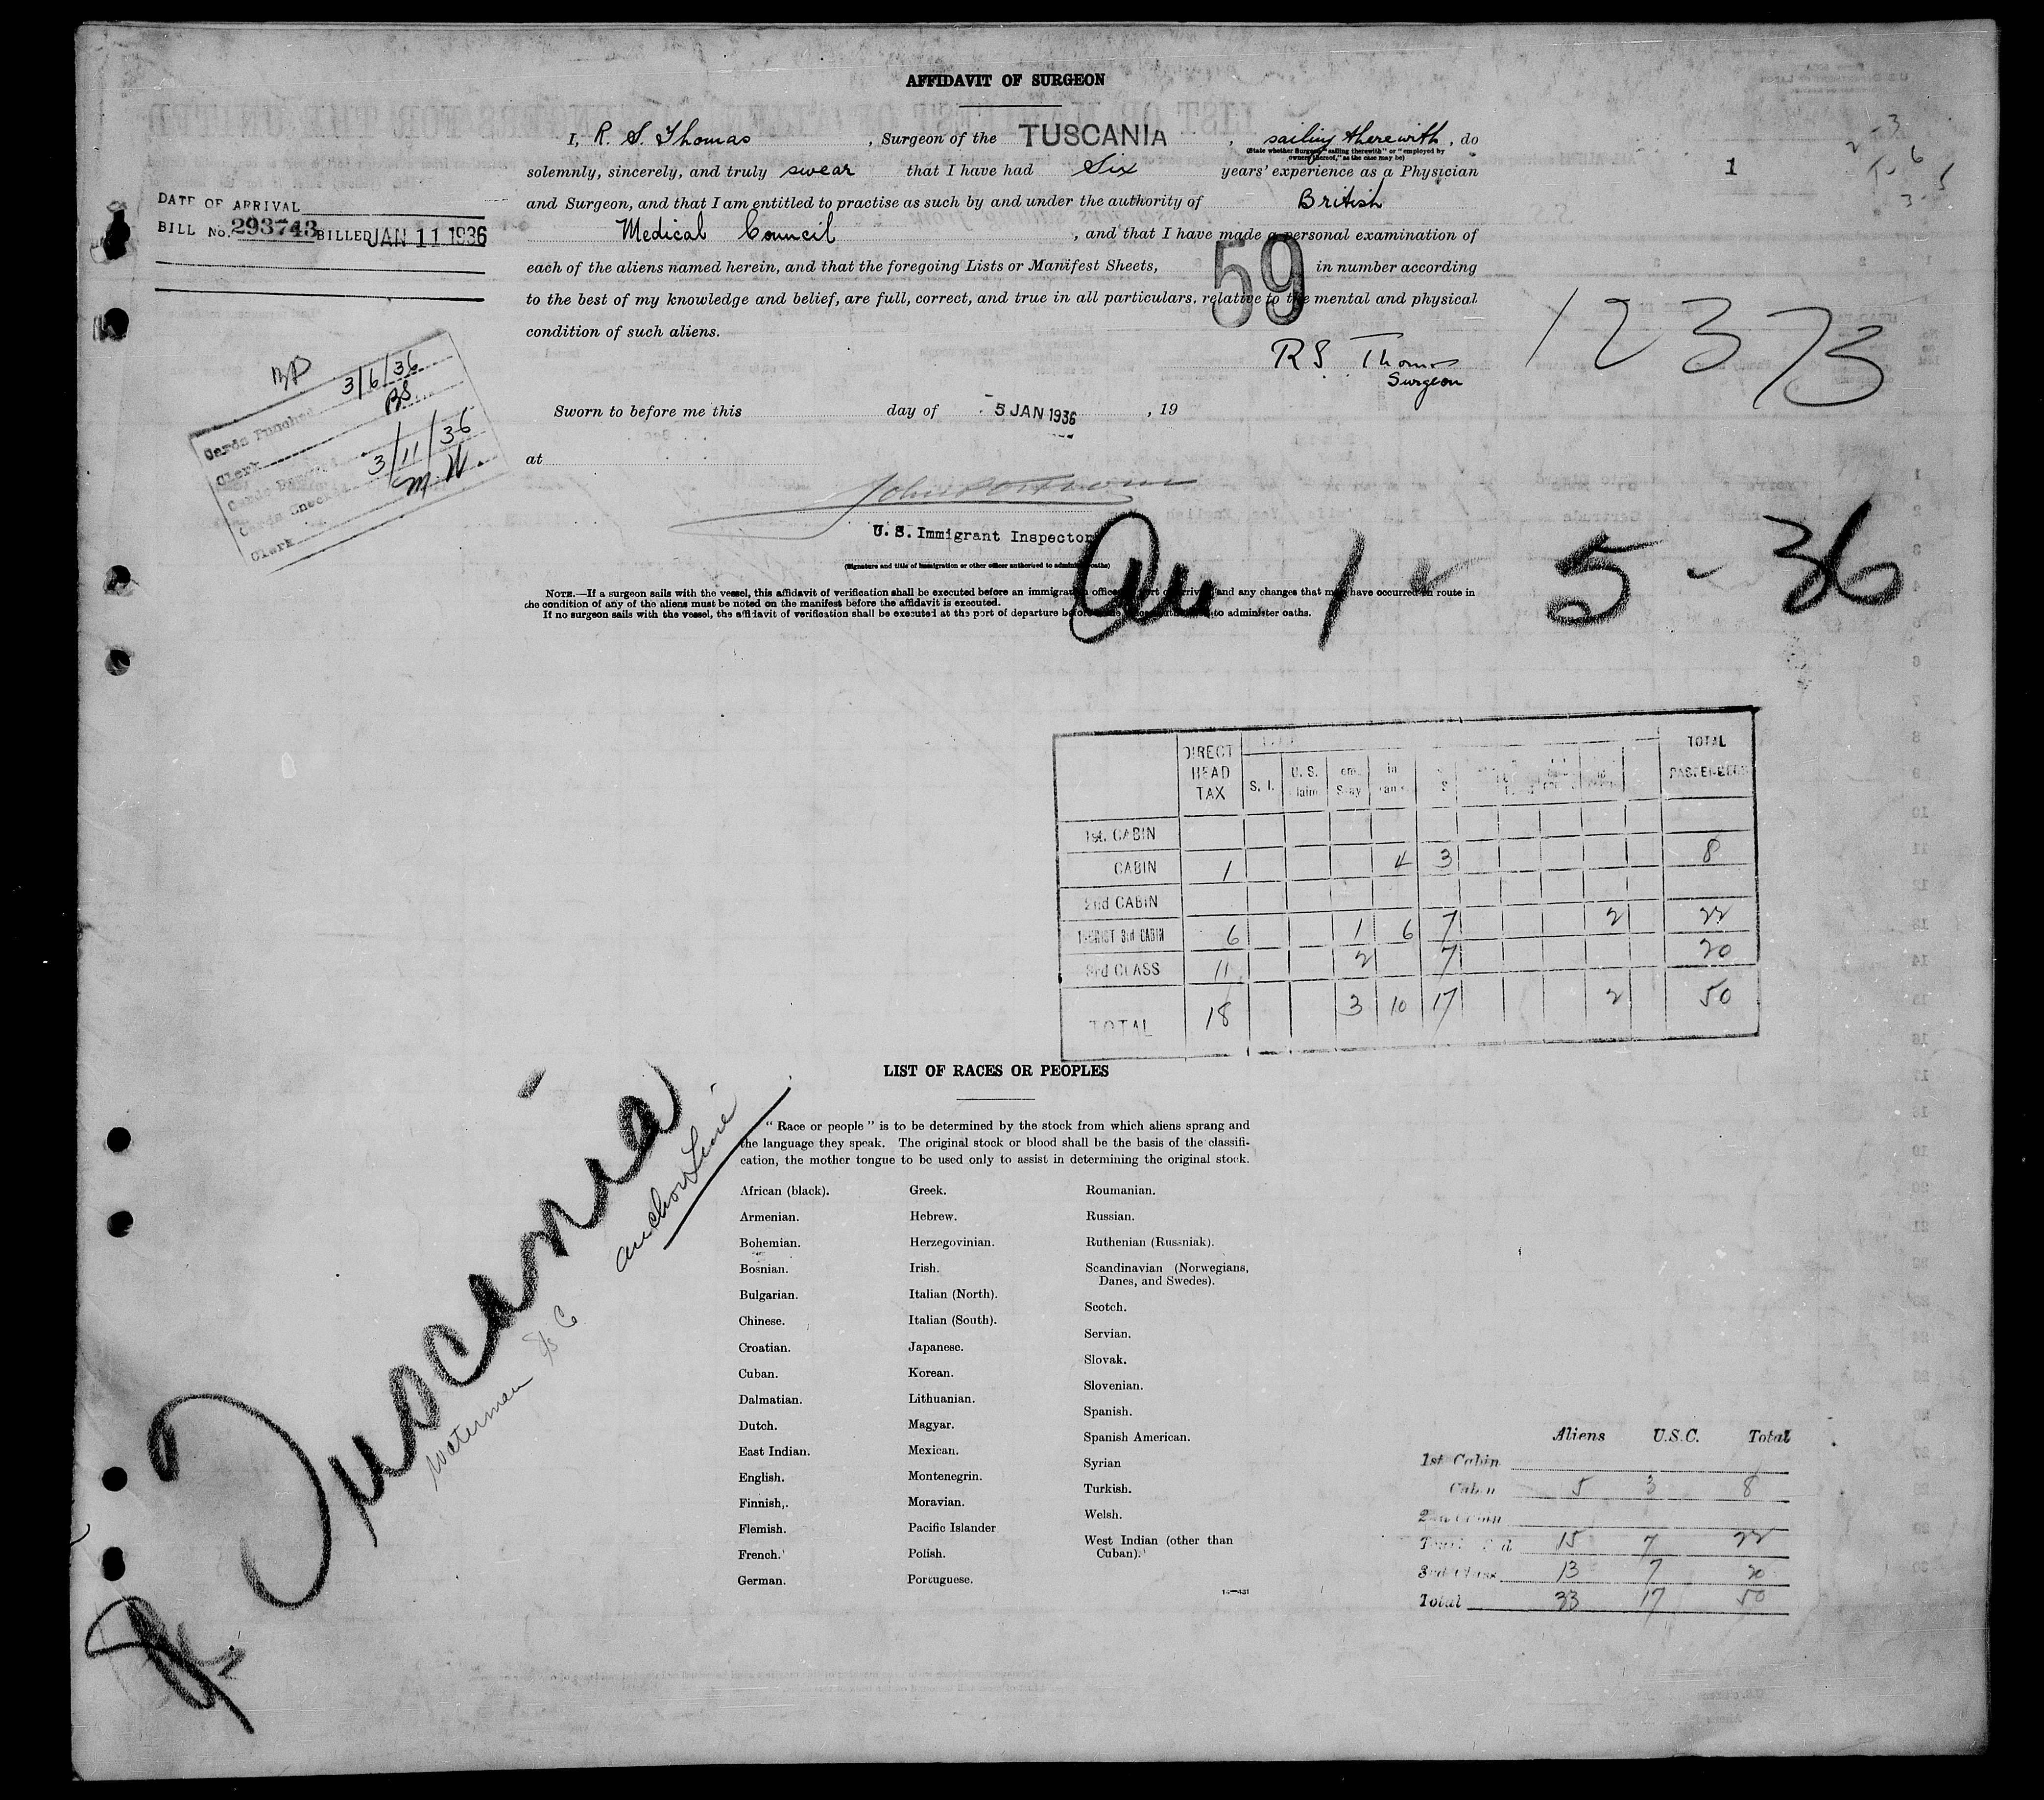 AFFIDAVIT OF SURGEON
I, R. S. Thomas, Surgeon of the TUSCANIA, sailing therewith, do
(State whether Surgeon "sailing therewith" or "employed by
owners thereof," as the case may be)
solemnly, sincerely, and truly swear that I have had Six years' experience as a Physician
1
and Surgeon, and that I am entitled to practise as such by and under the authority of British
Medical Council, and that I have made a personal examination of
each of the aliens named herein, and that the foregoing Lists or Manifest Sheets, in number according
59
to the best of my knowledge and belief, are full, correct, and true in all particulars, relative to the mental and physical
condition of such aliens.
DATE OF ARRIVAL
BILL No. 293743 BILLED JAN 11 1936
12373
R S Thomas
Surgeon
Sworn to before me this day of 5 JAN 1936, 19
at
Cards Punched 3/6/36
Clerk BS
3/11/36
Cards Checked
Clerk M W
U. S. Immigrant Inspector
(Signature and title of immigration or other officer authorized to administer oaths)
1 - 5 - 36
NOTE.—If a surgeon sails with the vessel, this affidavit of verification shall be executed before an immigration officer port of arrival and any changes that may have occurred en route in
the condition of any of the aliens must be noted on the manifest before the affidavit is executed.
If no surgeon sails with the vessel, the affidavit of verification shall be executed at the port of departure before to administer oaths.
DIRECT HEAD TAX S. I. U. S. TOTAL PASSENGERS
1st. CABIN
CABIN 1 4 3 8
2nd CABIN
TOURIST 3rd CABIN 6 1 6 7 2 22
3rd CLASS 11 2 7 20
TOTAL 18 3 10 17 2 50
Tuscania
Anchor Line
Waterman
LIST OF RACES OR PEOPLES
"Race or people" is to be determined by the stock from which aliens sprang and
the language they speak. The original stock or blood shall be the basis of the classifi-
cation, the mother tongue to be used only to assist in determining the original stock.
African (black).
Armenian.
Bohemian.
Bosnian.
Bulgarian.
Chinese.
Croatian.
Cuban.
Dalmatian.
Dutch.
East Indian.
English.
Finnish,.
Flemish.
French.
German.
Greek.
Hebrew.
Herzegovinian.
Irish.
Italian (North).
Italian (South).
Japanese.
Korean.
Lithuanian.
Magyar.
Mexican.
Montenegrin.
Moravian.
Pacific Islander
Polish.
Portuguese.
Roumanian.
Russian.
Ruthenian (Russniak).
Scandinavian (Norwegians,
Danes, and Swedes).
Scotch.
Servian.
Slovak.
Slovenian.
Spanish.
Spanish American.
Syrian
Turkish.
Welsh.
West Indian (other than
Cuban).
14—431
Aliens U.S.C. Total
1st Cabin
Cabin 5 3 8
2nd Cabin
15 7 22
3rd Class 13 7 20
Total 33 17 50